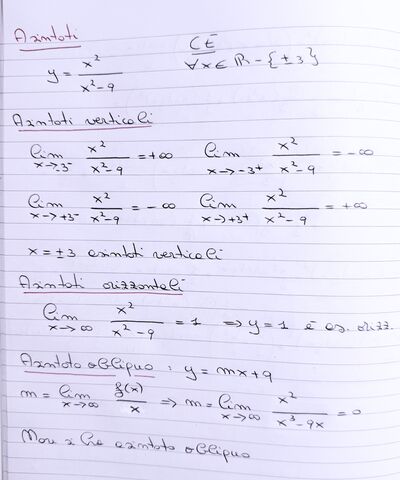 Asintoti
CE
y = x²/(x²-9) ∀x∈ℝ-{±3}
Asintoti verticali
lim x→-3⁻ x²/(x²-9) = +∞ lim x→-3⁺ x²/(x²-9) = -∞
lim x→+3⁻ x²/(x²-9) = -∞ lim x→+3⁺ x²/(x²-9) = +∞
x = ±3 asintoti verticali
Asintoti orizzontali
lim x→∞ x²/(x²-9) = 1 ⇒ y = 1 è as. orizz.
Asintoto obliquo : y = mx+q
m = lim x→∞ f(x)/x ⇒ m = lim x→∞ x²/(x³-9x) = 0
Non si ha asintoto obliquo